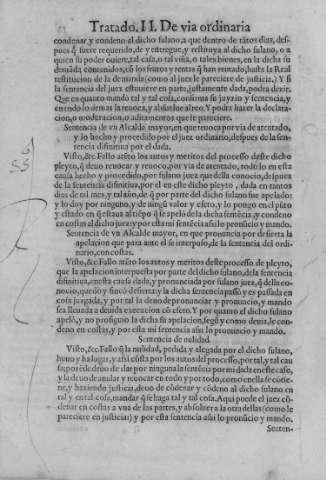 Tratado. II. De via ordinaria
condenar y condeno al dicho fulano, a que dentro de tãtos dias, des-
pues q̃ fuere requerido, de y entregue, y restituya al dicho fulano, o a
quien su poder ouiere, tal casa, o tal viña, o tales bienes, en la dicha su
demãda contenidos, cõ los frutos y rentas q̃ han rentado, hasta la Real
restitucion de la demanda (como al juez le pareciere justicia.) Y si
la sentencia del juez estuuiere en parte, justamente dada, podra dezir.
Que en quanto mando tal y tal cosa, confirma su juyzio y sentencia, y
en todo lo demas lo reuoca, y assuelue al reo. Y podra hazer la declara-
cion, o moderacion, o aditamentos que le pareciere.
Sentencia de vn Alcalde mayor, en que reuoca por via de atentado,
y lo hecho y procedido por el juez ordinario, despues de la senten-
cia difinitiua por el dada.
Visto, &c. Fallo atẽto los autos y meritos del processo deste dicho
pleyto, q̃ deuo reuocar y reuoco, por via de atentado, todo lo en esta
causa hecho y procedido, por fulano juez que della conocio, despues
de la sentencia difinitiua, por el en este dicho pleyto, dada en tantos
dias de tal mes, y tal año, de q̃ por parte del dicho fulano fue apelado:
y lo doy por ninguno, y de ningũ valor y efeto, y lo pongo en el pũto
y estado en q̃ estaua al tiẽpo q̃ se apelò de la dicha sentẽcia, y condeno
en costas al dicho juez: y por esta mi sentẽcia assi lo pronuncio y mando.
Sentencia de vn Alcalde mayor, en que pronuncia por desierta la
apelacion que para ante el se interpuso, de la sentencia del ordi-
nario, con costas.
Visto, &c. Fallo atẽto los autos y meritos deste processo de pleyto,
que la apelacion interpuesta por parte del dicho fulano, de la sentencia
difinitiua, en esta causa dada, y pronunciada por fulano juez, q̃ della co-
nocio, quedò y fincò desierta: y la dicha sentencia passò y es passada en
cosa juzgada, y por tal la deuo de pronunciar y pronuncio, y mando
sea lleuada a deuida execucion cõ efeto. Y por quanto el dicho fulano
apelò, y no prosiguio la dicha su apelacion, segũ y como deuia, le con-
deno en costas, y por esta mi sentencia assi lo pronuncio y mando.
Sentencia de nulidad.
Visto, &c. Fallo q̃ la nulidad, pedida y alegada por el dicho fulano,
huuo y ha lugar, y assi cõsta por los autos del processo, por tal, y tal cau
sa, por ẽde deuo de dar por ninguna la sentẽcia por mi dada en este caso,
y la deuo de anular y reuocar en todo y por todo, como en ella se cõtie-
ne, y haziendo justicia, deuo de cõdenar y cõdeno al dicho fulano en
tal y en tal cosa, mandar q̃ se haga tal y tal cosa. Aqui puede el juez cõ-
denar en costas a vna de las partes, y absoluer a la otra dellas (como le
pareciere en justicia:) y por esta sentencia assi lo pronũcio y mando.
Senten-